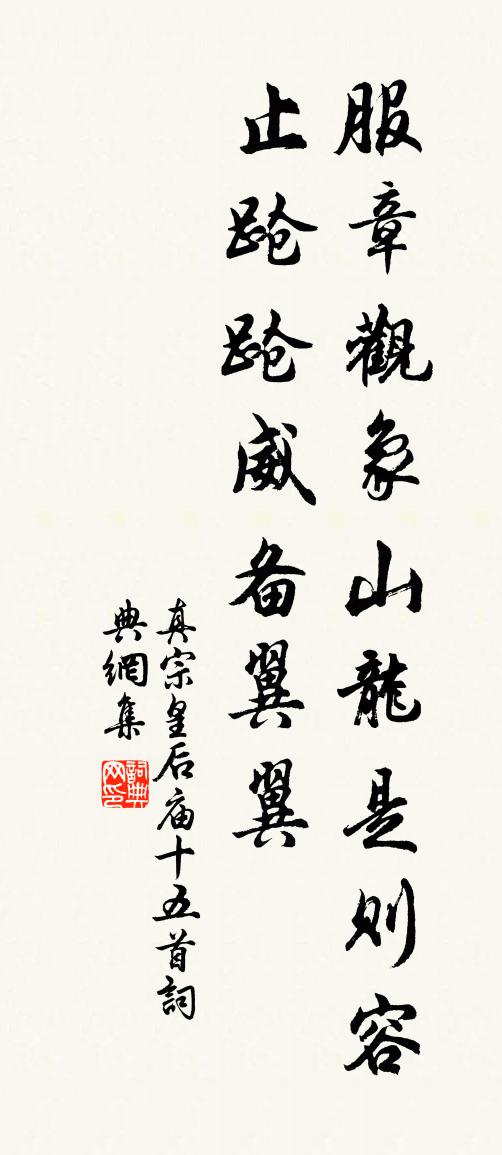 服章觀象山龍是则容
止蹌蹌威备翼翼
真宗皇后庙十五首詞
典網集
詞典网印